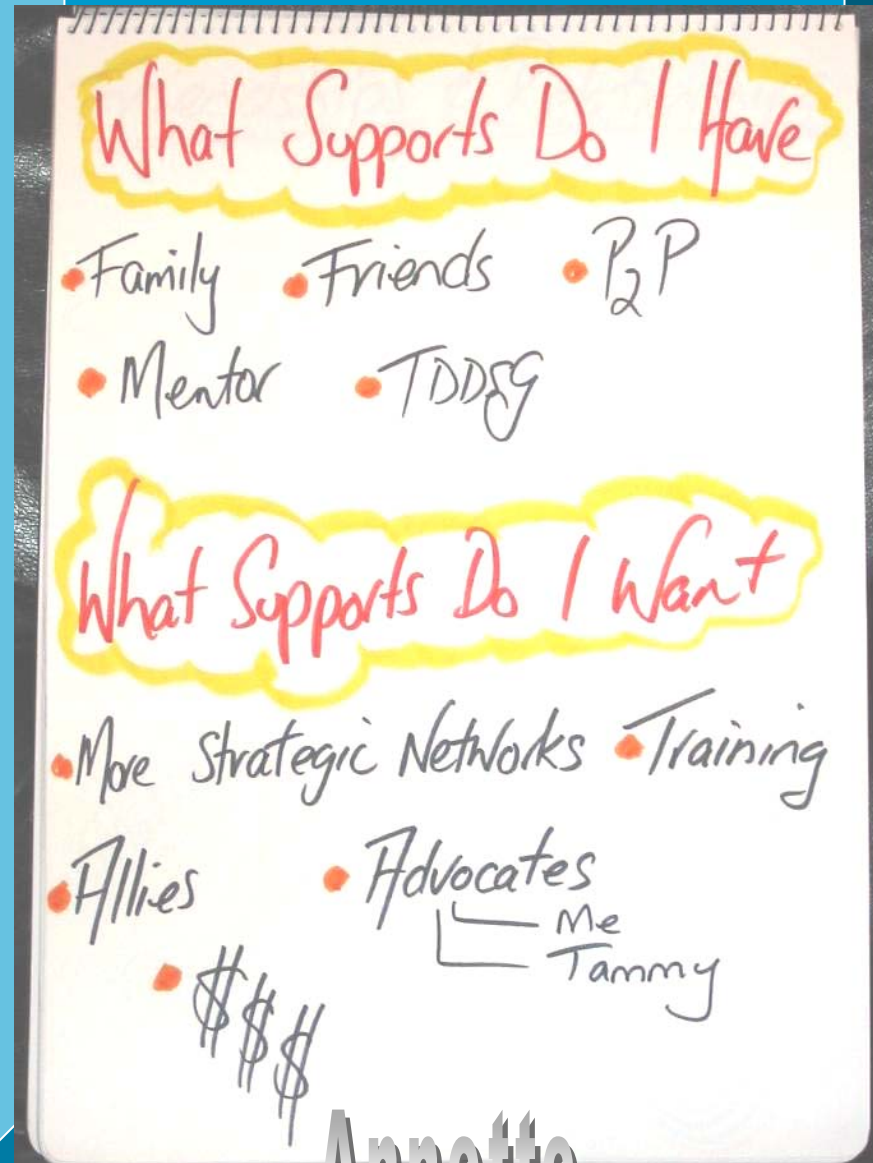 What Supports Do I Have
• Family • Friends • P2P
• Mentor • TDDSG
What Supports Do I Want
• More Strategic Networks • Training
• Allies • Advocates
Me
Tammy
• $$$
Annette